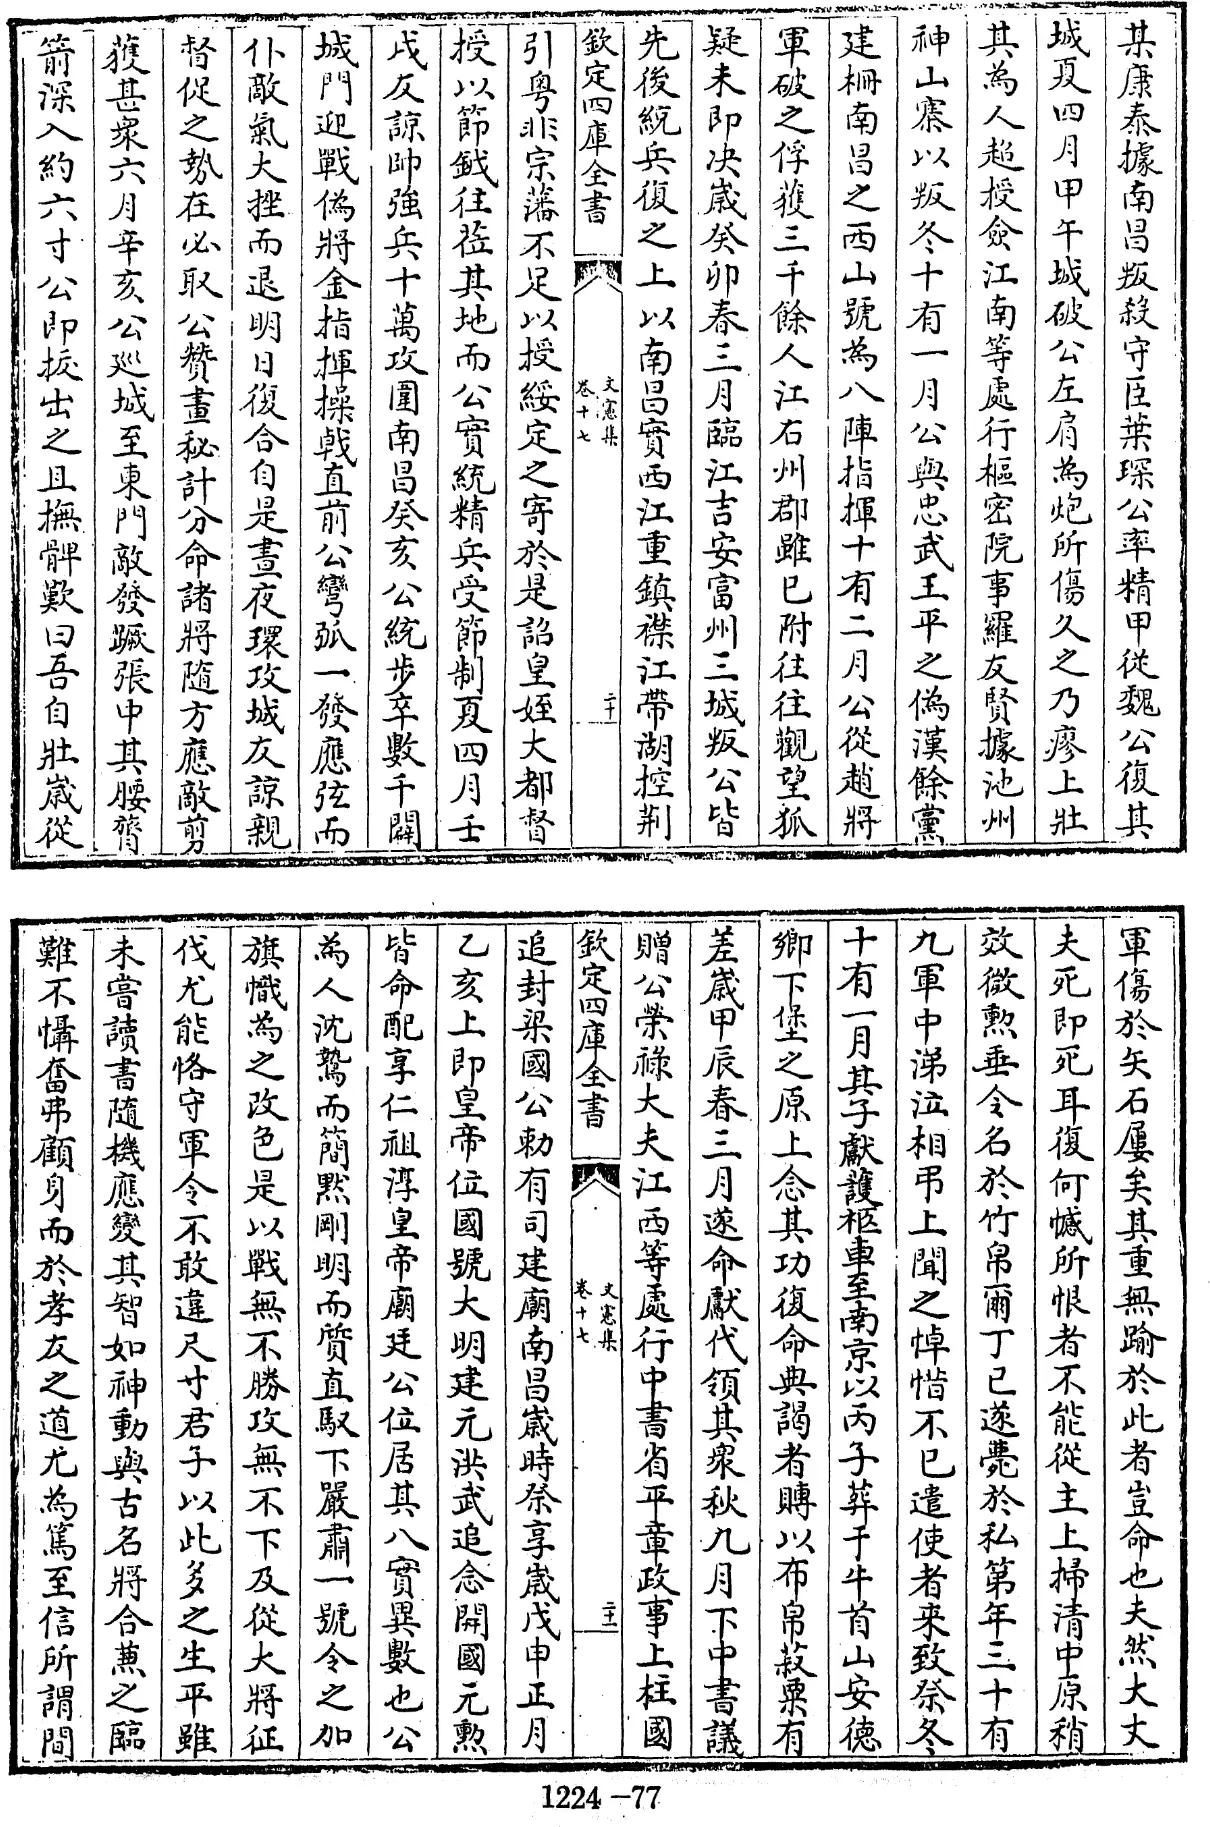 某康泰據南昌叛殺守臣葉琛公率精甲從魏公復其
城夏四月甲午城破公左肩為炮所傷久之乃瘳上壯
其為人超授僉江南等處行樞密院事羅友賢據池州
神山寨以叛冬十有一月公與忠武王平之偽漢餘黨
建柵南昌之西山號為八陣指揮十有二月公從趙將
軍破之俘獲三千餘人江右州郡雖已附往往觀望狐
疑未即决歲癸卯春三月臨江吉安富州三城叛公皆
先後統兵復之上以南昌實西江重鎮襟江帶湖控荆
欽定四庫全書
文憲集
卷十七
二十
引粵非宗藩不足以授綏定之寄於是詔皇姪大都督
授以節鉞往蒞其地而公實統精兵受節制夏四月壬
戌友諒帥強兵十萬攻圍南昌癸亥公統步卒數千闢
城門迎戰偽將金指揮操戟直前公彎弧一發應弦而
仆敵氣大挫而退明日復合自是晝夜環攻城友諒親
督促之勢在必取公贊畫秘計分命諸將隨方應敵剪
獲甚衆六月辛亥公巡城至東門敵發蹶張中其腰膂
箭深入約六寸公即拔出之且撫髀歎曰吾自壯歲從
軍傷於矢石屢矣其重無踰於此者豈命也夫然大丈
夫死即死耳復何憾所恨者不能從主上掃清中原稍
效微勲垂令名於竹帛爾丁巳遂薨於私第年三十有
九軍中涕泣相弔上聞之悼惜不已遣使者來致祭冬
十有一月其子獻護柩車至南京以丙子葬于牛首山安德
鄉下堡之原上念其功復命典謁者賻以布帛菽粟有
差歲甲辰春三月遂命獻代領其衆秋九月下中書議
贈公榮祿大夫江西等處行中書省平章政事上柱國
欽定四庫全書
文憲集
卷十七
二十一
追封梁國公勅有司建廟南昌歲時祭享歲戊申正月
乙亥上即皇帝位國號大明建元洪武追念開國元勲
皆命配享仁祖淳皇帝廟廷公位居其八實異數也公
為人沈鷙而簡默剛明而質直馭下嚴肅一號令之加
旗幟為之改色是以戰無不勝攻無不下及從大將征
伐尤能恪守軍令不敢違尺寸君子以此多之生平雖
未嘗讀書隨機應變其智如神動與古名將合蕪之臨
難不懾奮弗顧身而於孝友之道尤為篤至信所謂間
1224-77